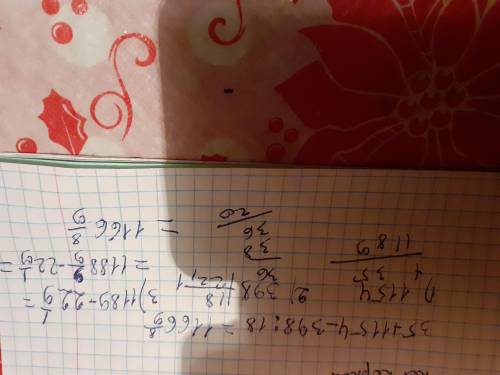 35+1154-398:18=1166 8/9
1) 1154
35
1189
2) 398 | 18
36 | 22,1
38
36
20
3) 1189-22 1/9=
=1188 9/9-22 1/9=
=1166 8/9